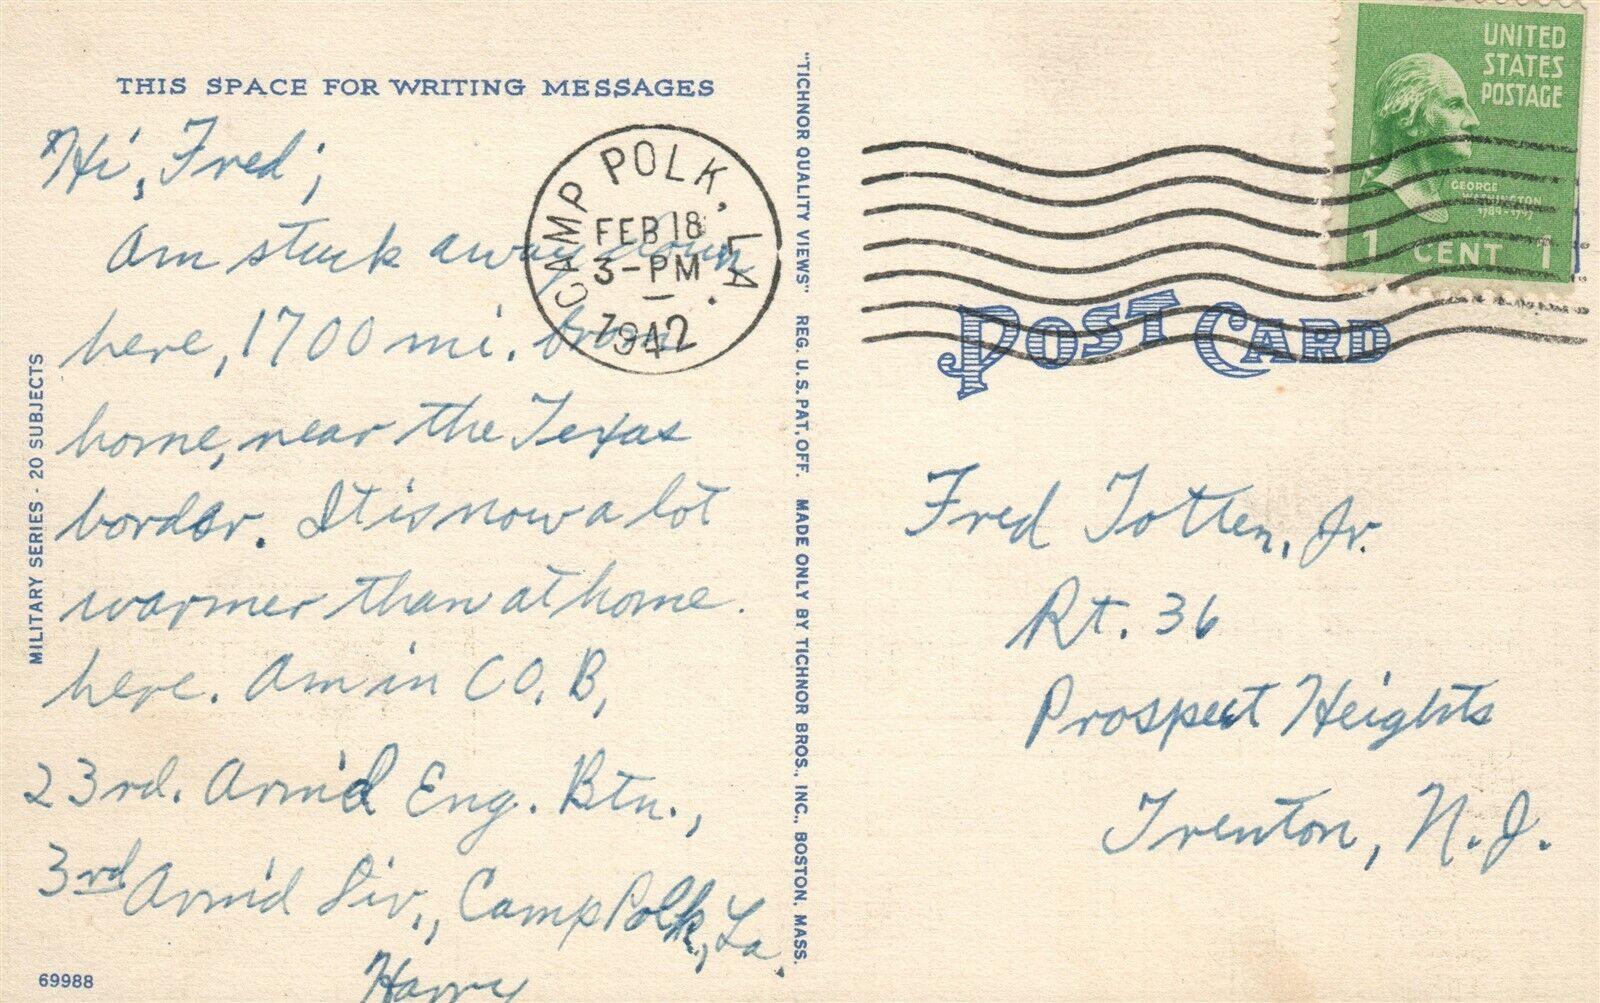 THIS SPACE FOR WRITING MESSAGES
Hi, Fred;
Am stuck away down
here, 1700 mi. from
home, near the Texas
border. It is now a lot
warmer than at home
here. Am in CO. B,
23rd. Arm'd Eng. Btn.,
3rd Arm'd Div., Camp Polk, La.
Harry
69988
MILITARY SERIES - 20 SUBJECTS
CAMP POLK, LA.
FEB 18
3-PM
1942
"TICHNOR QUALITY VIEWS" REG. U.S. PAT. OFF. MADE ONLY BY TICHNOR BROS., INC., BOSTON, MASS.
UNITED
STATES
POSTAGE
GEORGE
WASHINGTON
1789-1797
1 CENT 1
POST CARD
Fred Totten, Jr.
Rt. 36
Prospect Heights
Trenton, N.J.